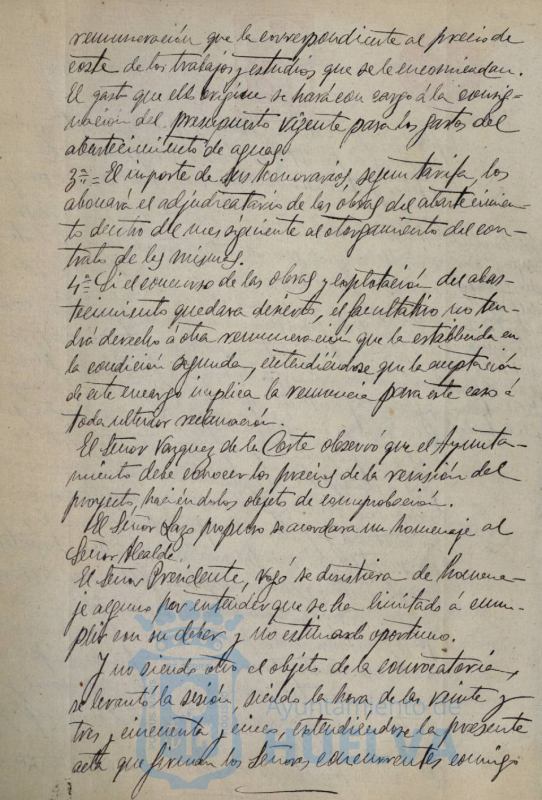 remuneración que la correspondiente al precio de
coste de los trabajos y estudios que se le encomiendan.
El gasto que ello origine se hará con cargo á la consig-
nación del presupuesto vigente para los gastos del
abastecimiento de aguas.
3ª = El importe de sus honorarios, según tarifa, los
abonará el adjudicatario de las obras del abastecimien-
to dentro del mes siguiente al otorgamiento del con-
trato de las mismas.
4ª = Si el concurso de las obras y explotación del abas-
tecimiento quedara desierto, el facultativo no ten-
drá derecho á otra remuneración que la establecida en
la condición segunda, entendiéndose que la aceptación
de este encargo implica la renuncia para este caso á
toda ulterior reclamación.
El Señor Vazquez de la Corte observó que el Ayunta-
miento debe conocer los precios de la revisión del
proyecto, haciéndolos objeto de comprobación.
El Señor Lazo propuso se acordara un homenaje al
Señor Alcalde.
El Señor Presidente, rogó se desistiera de homena-
je alguno por entender que se ha limitado á cum-
plir con su deber y no estimarlo oportuno.
Y no siendo otro el objeto de la convocatoria,
se levantó la sesión, siendo la hora de las veinte y
tres y cincuenta y cinco, extendiéndose la presente
acta que firman los Señores concurrentes conmigo
Ayuntamiento de
HUELVA